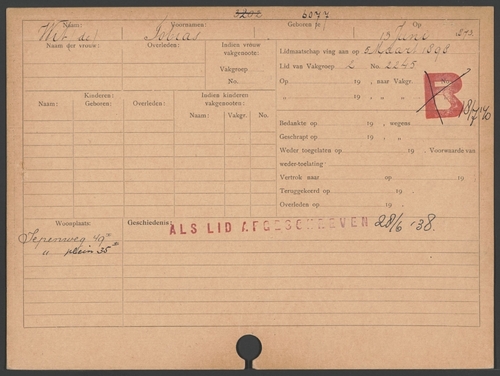 3202 6077
Naam: Voornamen: Geboren te Op
Wit de Tobias 15 Juni 1873
Naam der vrouw: Overleden: Indien vrouw vakgenoote: Lidmaatschap ving aan op 5 Maart 1898
Vakgroep Lid van Vakgroep 2 No. 2245
No. Op 19 , naar Vakgr. No.
„ 19 , „ „ B 18/7 '40
Kinderen: Indien kinderen vakgenooten:
Naam: Geboren: Overleden: Naam: Vakgr. No.
Bedankte op 19 , wegens
Geschrapt op 19 , „
Weder toegelaten op 19 , Voorwaarde van
weder-toelating:
Vertrok naar op 19
Teruggekeerd op 19 .
Overleden op 19 .
Woonplaats: Geschiedenis: ALS LID AFGESCHREVEN 28/6 '38.
Iepenweg 49
„ plein 35